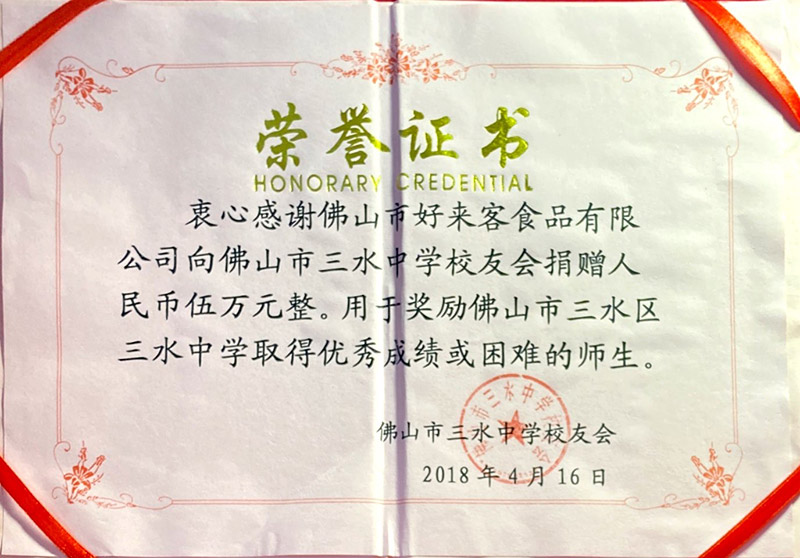 荣誉证书
HONORARY CREDENTIAL
衷心感谢佛山市好来客食品有限
公司向佛山市三水中学校友会捐赠人
民币伍万元整。用于奖励佛山市三水区
三水中学取得优秀成绩或困难的师生。
佛山市三水中学校友会
2018年4月16日